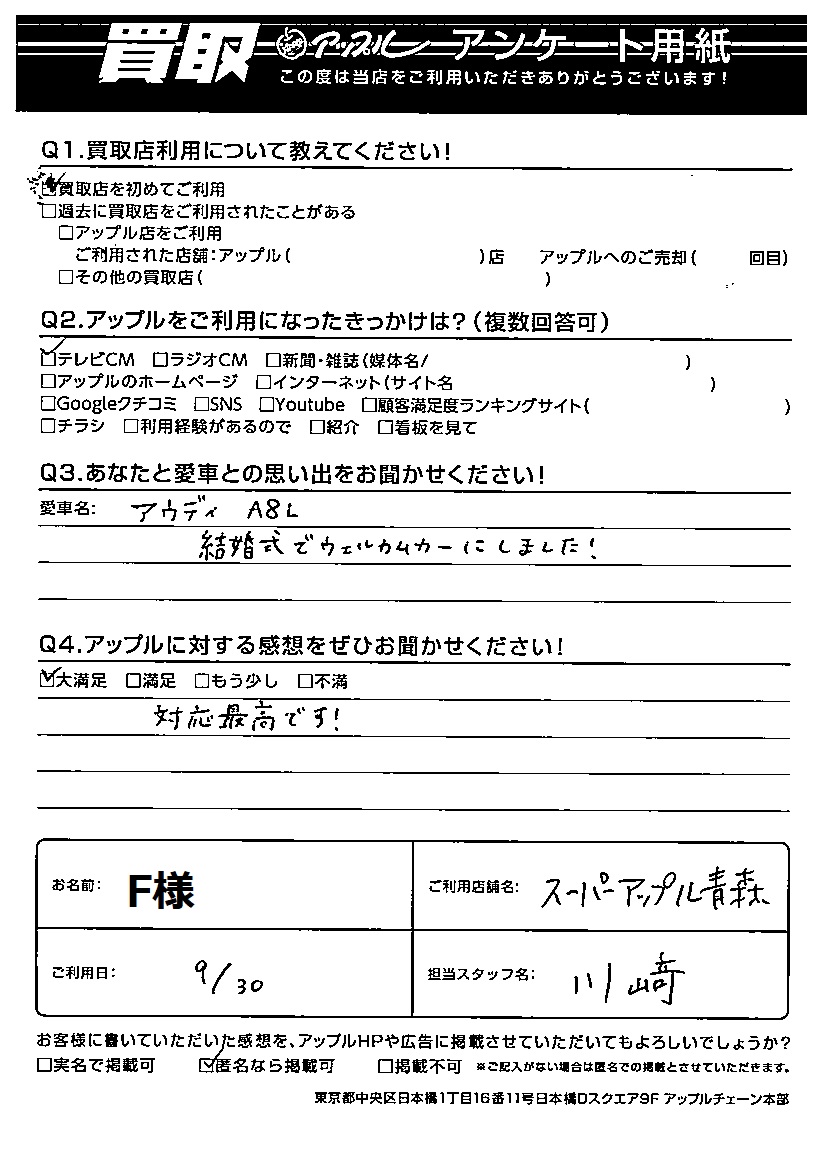 買取 アップル アンケート用紙
この度は当店をご利用いただきありがとうございます!
Q1.買取店利用について教えてください!
☑買取店を初めてご利用
□過去に買取店をご利用されたことがある
□アップル店をご利用
ご利用された店舗:アップル( )店 アップルへのご売却( 回目)
□その他の買取店( )
Q2.アップルをご利用になったきっかけは?(複数回答可)
☑テレビCM □ラジオCM □新聞・雑誌(媒体名/ )
□アップルのホームページ □インターネット(サイト名 )
□Googleクチコミ □SNS □Youtube □顧客満足度ランキングサイト( )
□チラシ □利用経験があるので □紹介 □看板を見て
Q3.あなたと愛車との思い出をお聞かせください!
愛車名: アウディ A8L
結婚式でウェルカムカーにしました!
Q4.アップルに対する感想をぜひお聞かせください!
☑大満足 □満足 □もう少し □不満
対応最高です!
お名前: F様 ご利用店舗名: スーパーアップル青森
ご利用日: 9/30 担当スタッフ名: 川﨑
お客様に書いていただいた感想を、アップルHPや広告に掲載させていただいてもよろしいでしょうか?
□実名で掲載可 ☑匿名なら掲載可 □掲載不可 ※ご記入がない場合は匿名での掲載とさせていただきます。
東京都中央区日本橋1丁目16番11号日本橋Dスクエア9F アップルチェーン本部